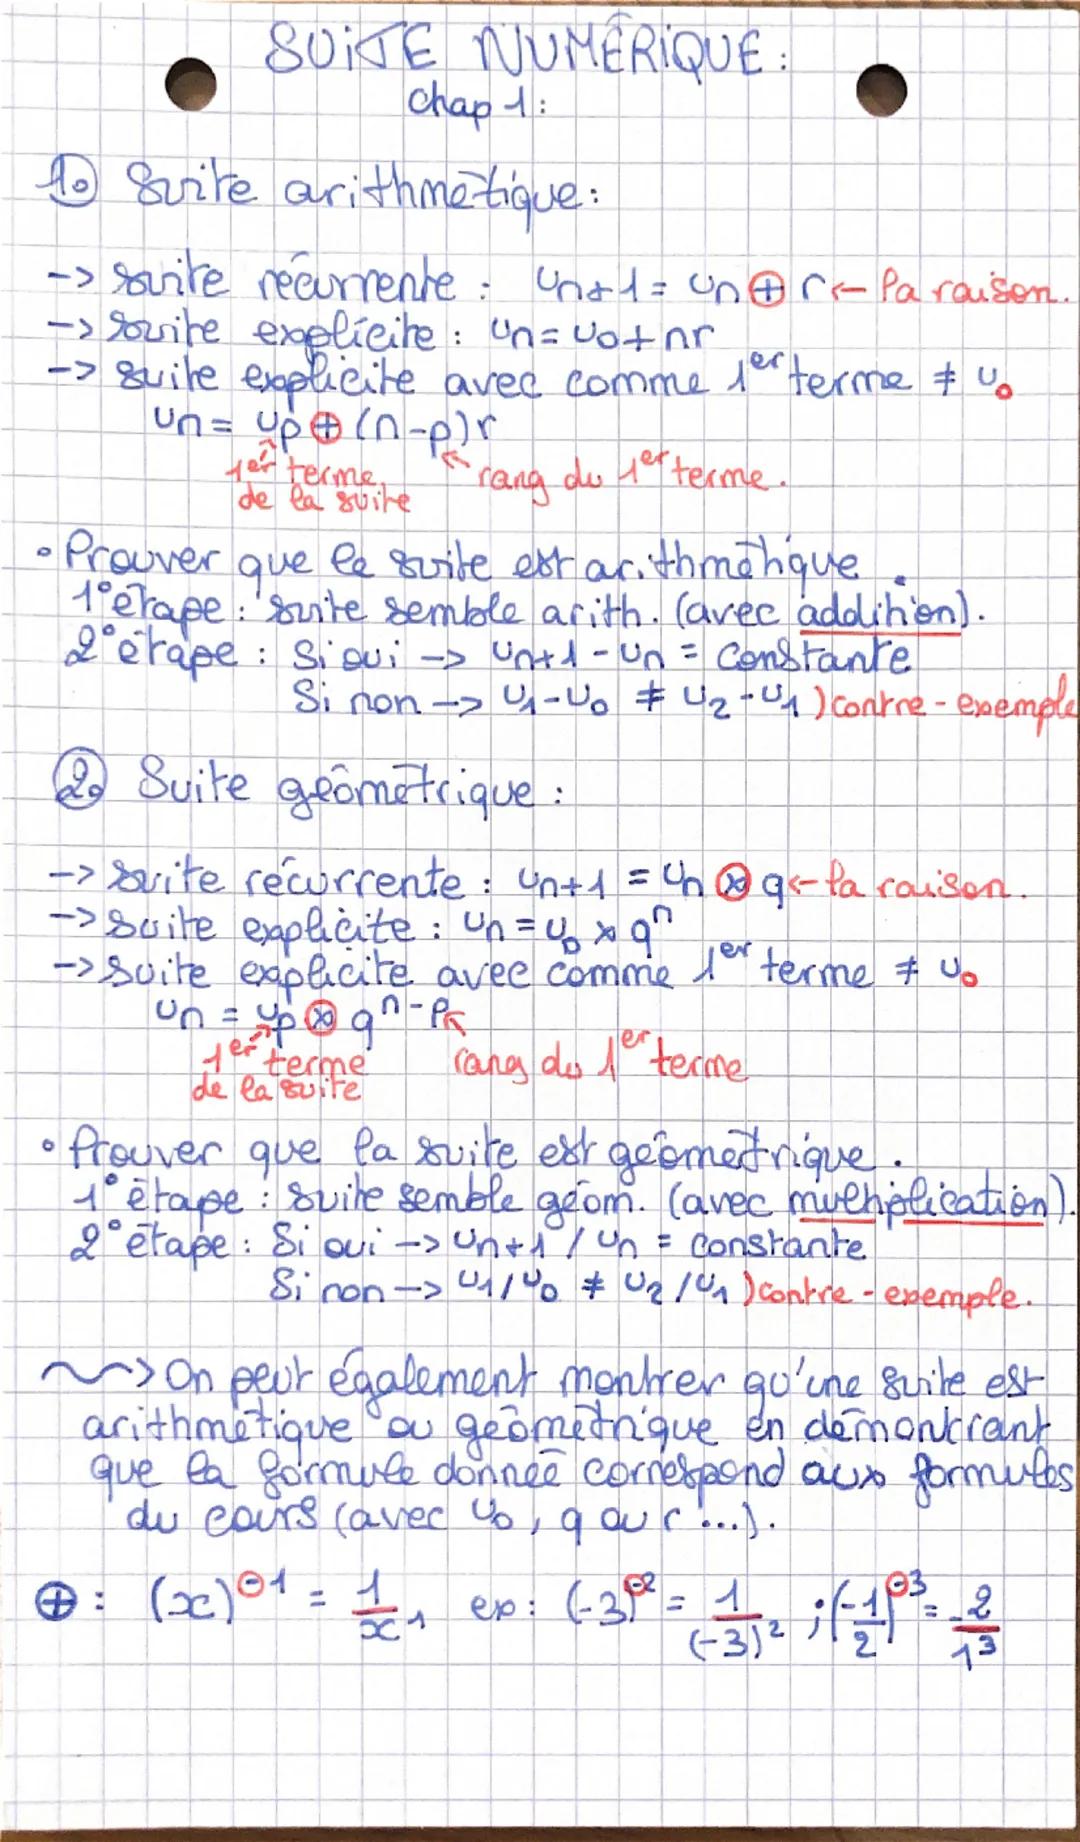 SUITE NUMÉRIQUE :
Chap 1 :
1. Suite arithmétique :
-> suite récurrente : un+1 = un ⊕ r ← la raison.
-> suite explicite : un = u0 + nr
-> suite explicite avec comme 1er terme ≠ u0
un = up ⊕ (n-p)r
1er terme de la suite
rang du 1er terme.
• Prouver que le suite est arithmétique.
1° étape : suite semble arith. (avec addition).
2° étape : Si oui -> un+1 - un = constante
Si non -> u1 - u0 ≠ u2 - u1 ) contre-exemple
2. Suite géométrique :
-> suite récurrente : un+1 = un ⊗ q ← la raison.
-> suite explicite : un = u0 × qⁿ
-> suite explicite avec comme 1er terme ≠ u0
un = up ⊗ qⁿ⁻ᵖ
1er terme de la suite
rang du 1er terme
• Prouver que la suite est géométrique.
1° étape : suite semble géom. (avec multiplication).
2° étape : Si oui -> un+1 / un = constante
Si non -> u1/u0 ≠ u2/u1 ) contre-exemple.
~~> On peut également montrer qu'une suite est
arithmétique ou géométrique en démontrant
que la formule donnée correspond aux formules
du cours (avec u0, q ou r ...).
⊕ : (x)⁻¹ = 1/x¹ ex : (-3)⁻² = 1/(-3)² ; (-1/2)⁻³ = -2/1³